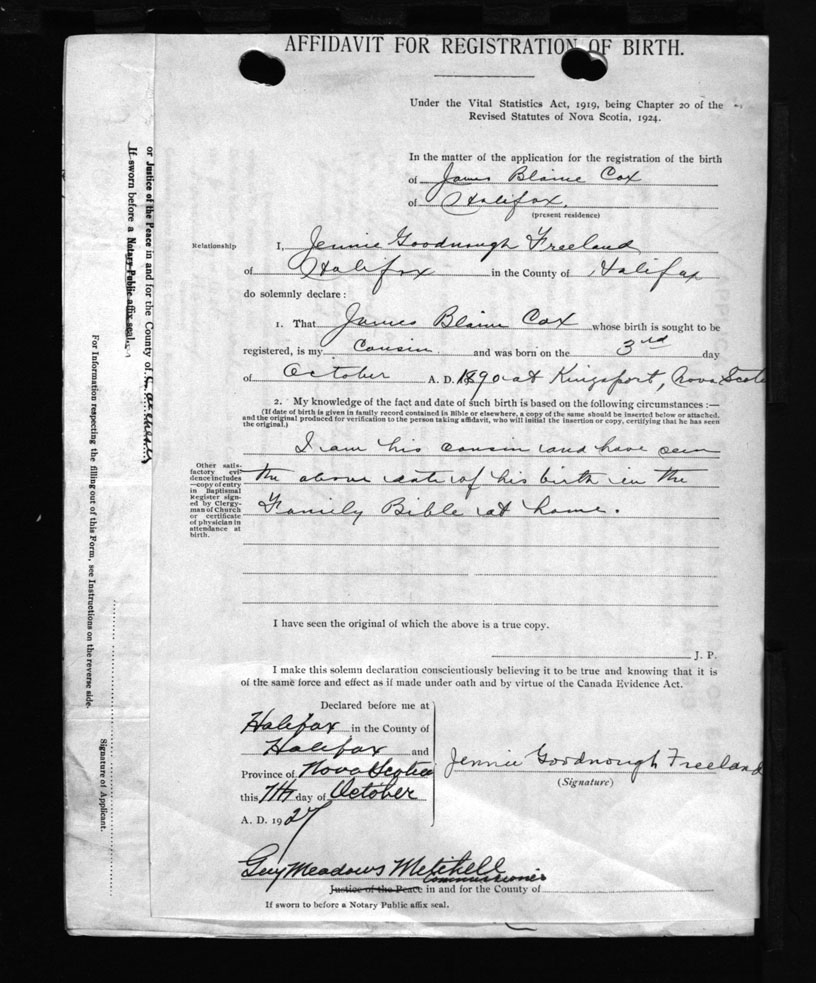 AFFIDAVIT FOR REGISTRATION OF BIRTH.
Under the Vital Statistics Act, 1919, being Chapter 20 of the
Revised Statutes of Nova Scotia, 1924.
In the matter of the application for the registration of the birth
of James Blaine Cox
of Halifax.
(present residence)
Relationship
I, Jennie Goodnough Freeland
of Halifax in the County of Halifax
do solemnly declare:
1. That James Blaine Cox whose birth is sought to be
registered, is my Cousin and was born on the 3rd day
of October A. D. 1890 at Kingsport, Nova Scotia
2. My knowledge of the fact and date of such birth is based on the following circumstances:—
(If date of birth is given in family record contained in Bible or elsewhere, a copy of the same should be inserted below or attached,
and the original produced for verification to the person taking affidavit, who will initial the insertion or copy, certifying that he has seen
the original.)
I am his cousin and have seen
the above date of his birth in the
Family Bible at home.
Other satis-
factory evi-
dence includes
—copy of entry
in Baptismal
Register sign-
ed by Clergy-
man of Church
or certificate
of physician in
attendance at
birth.
I have seen the original of which the above is a true copy.
J. P.
I make this solemn declaration conscientiously believing it to be true and knowing that it is
of the same force and effect as if made under oath and by virtue of the Canada Evidence Act.
Declared before me at
Halifax in the County of
Halifax and
Province of Nova Scotia
this 7th day of October
A. D. 1927
Jennie Goodnough Freeland
(Signature)
Guy Meadows Mitchell
Commissioner
Justice of the Peace in and for the County of
If sworn to before a Notary Public affix seal.
or Justice of the Peace in and for the County of
If sworn before a Notary Public affix seal.
For Information respecting the filling out of this Form, see Instructions on the reverse side.
Signature of Applicant.